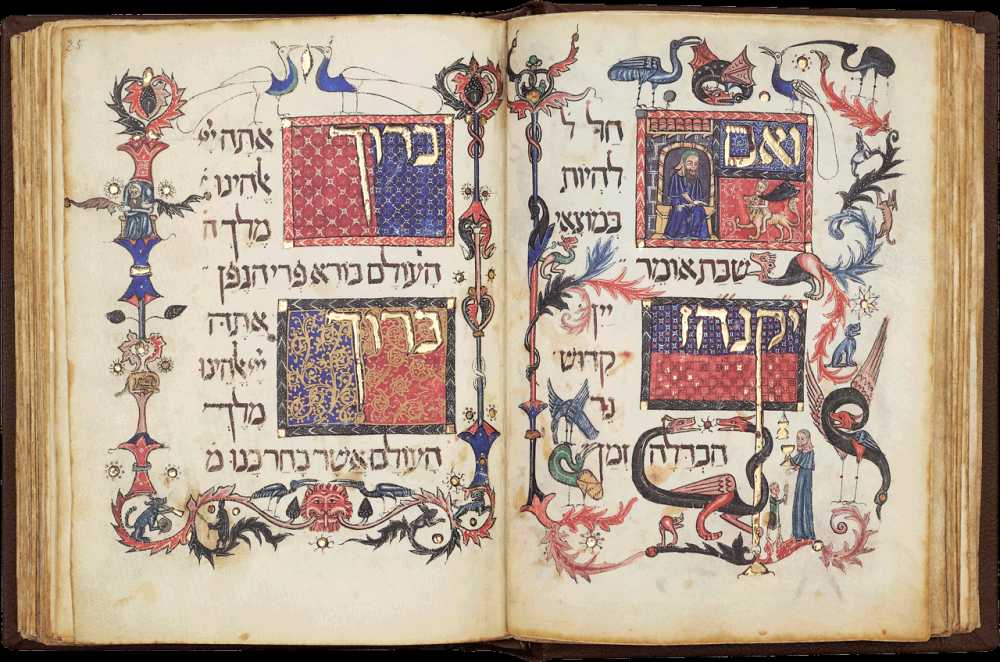 ואם
חל ל
להיות
במוצאי
שבת אומר
יקנהז
יין
קדוש
נר
הבדלה זמן
25
ברוך
אתה יי
אלהינו
מלך ה
העולם בורא פרי הגפן
ברוך
אתה
יי אלהינו
מלך
העולם אשר בחר בנו מ